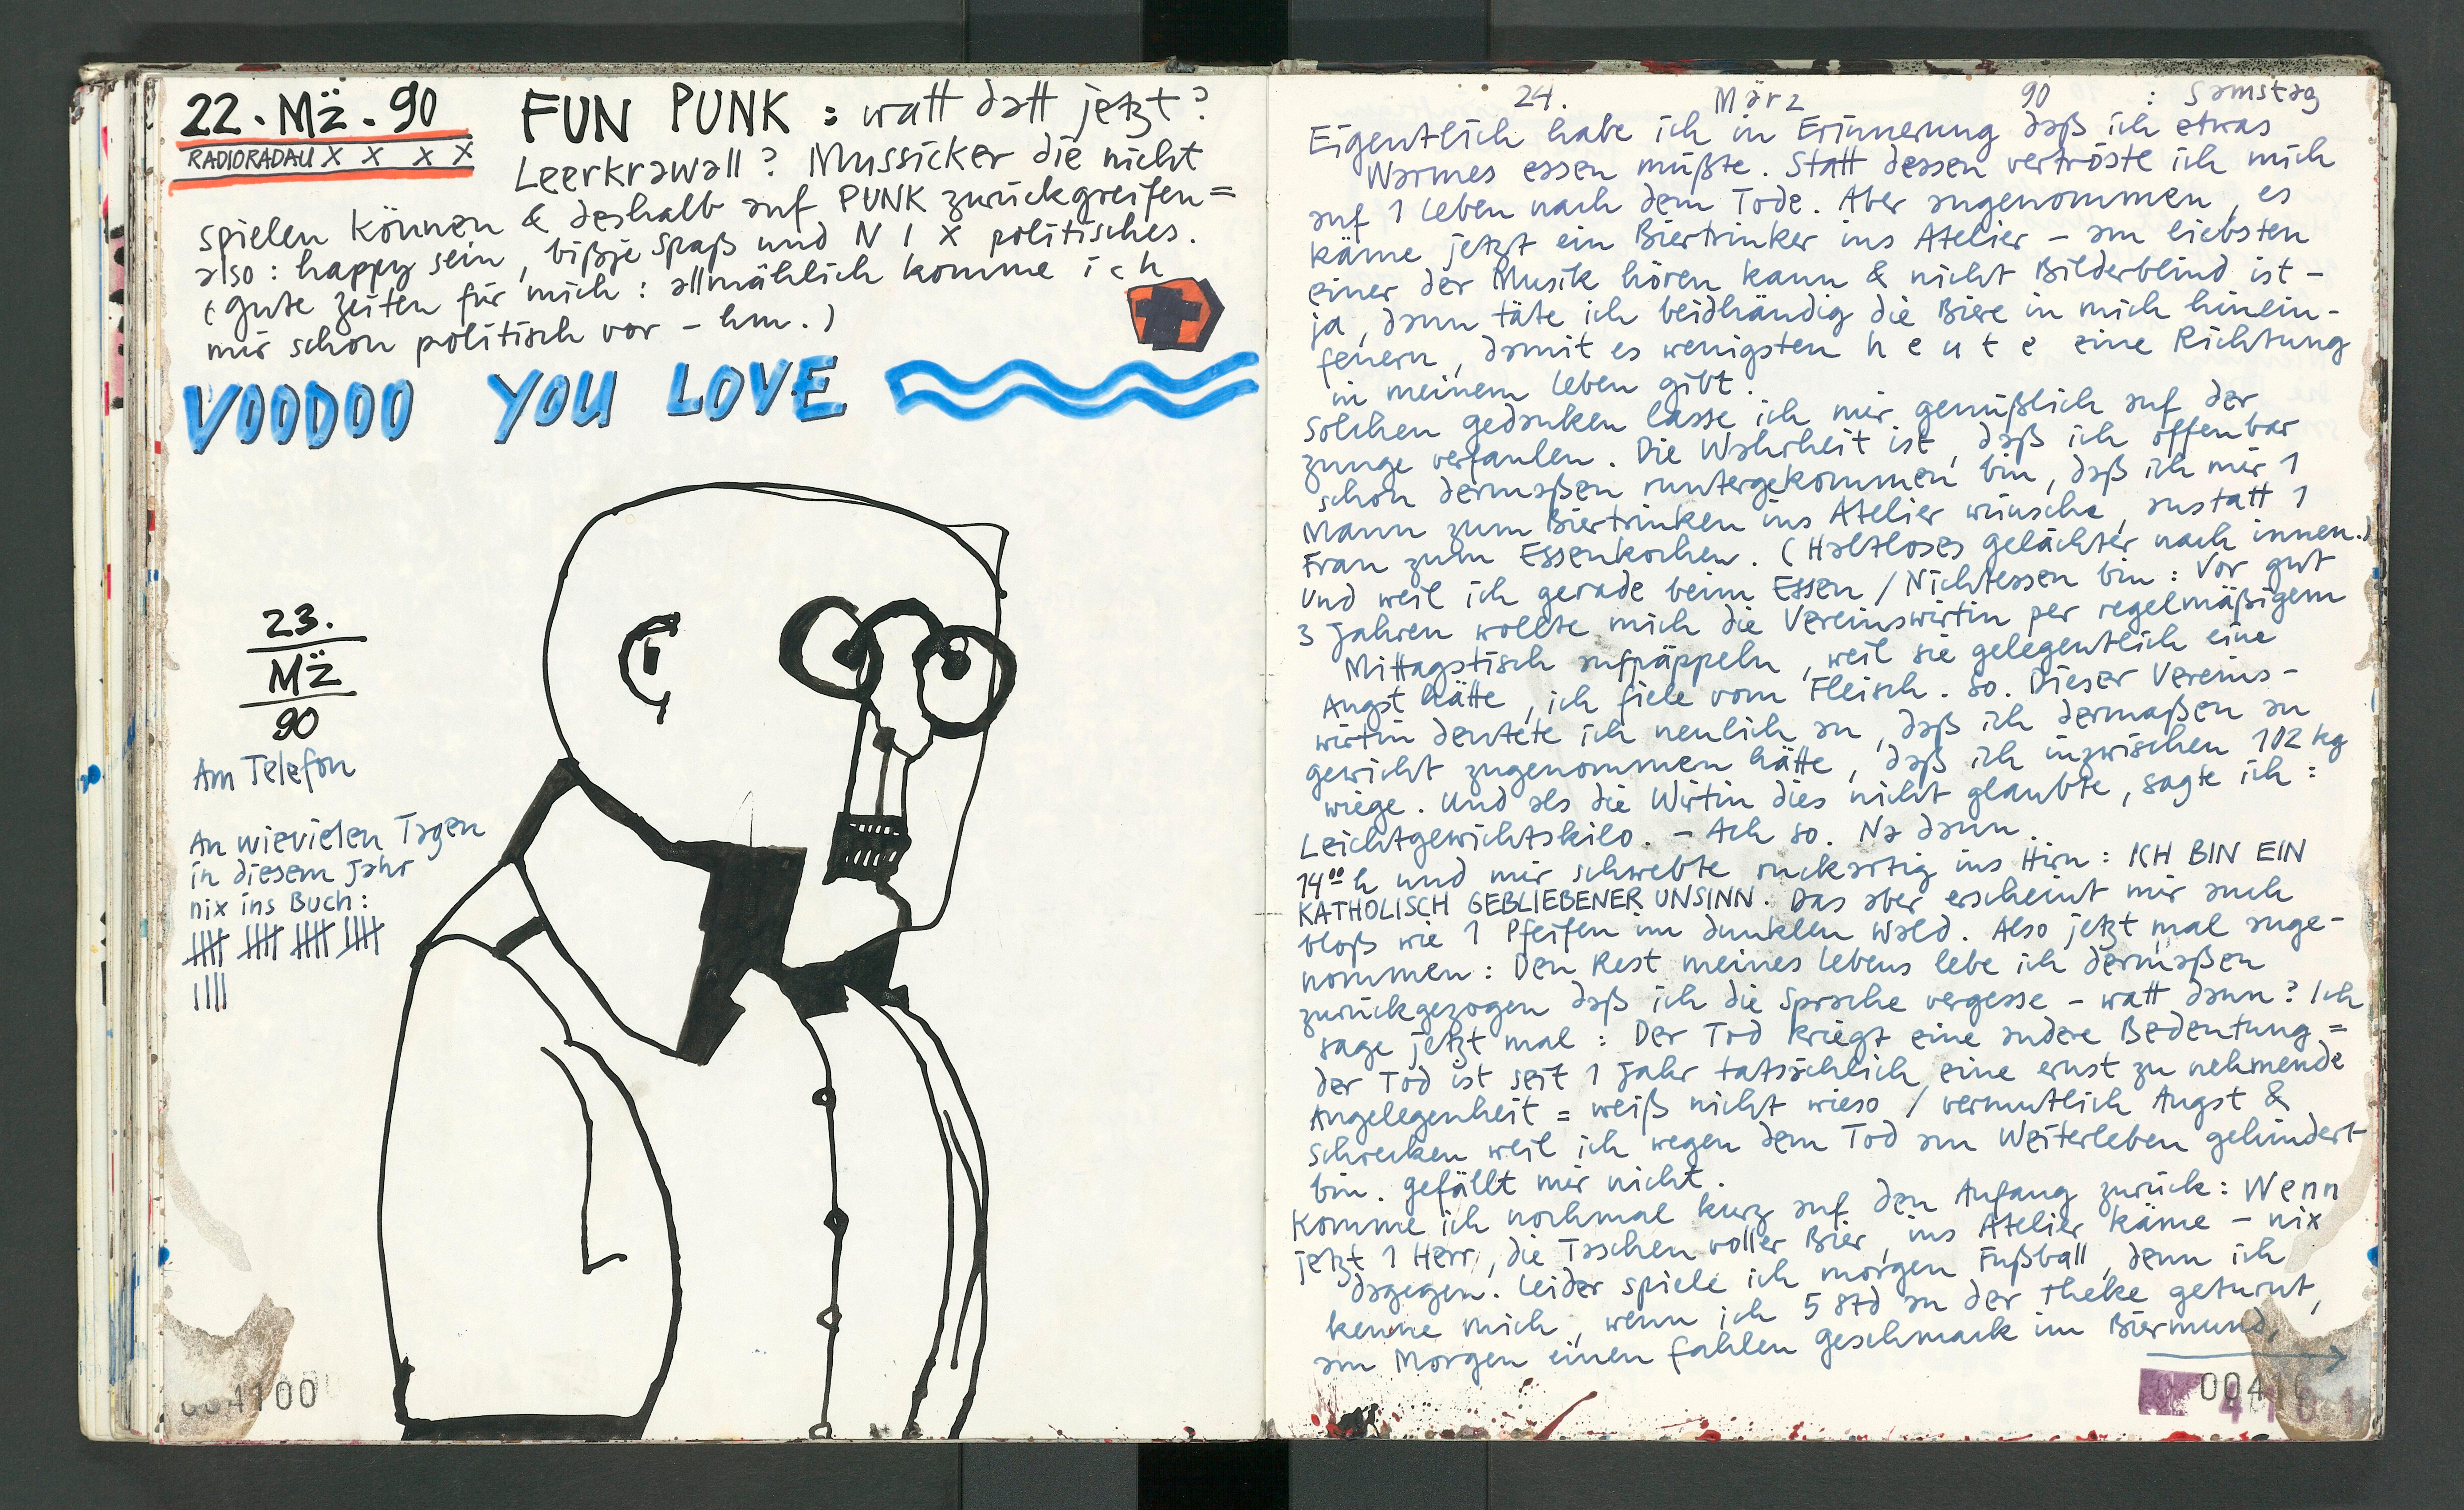 22. Mä. 90
RADIORADAU X X X X
FUN PUNK : watt datt jetzt?
Leerkrawall? Mussicker die nicht
spielen können & deshalb auf PUNK zurückgreifen =
also: happy sein, bißje Spaß und N I X politisches.
(Gute Zeiten für mich: allmählich komme ich
mir schon politisch vor - hm.)
VOODOO YOU LOVE
23.
Mä
90
Am Telefon
An wievielen Tagen
in diesem Jahr
nix ins Buch:
004100
24. März 90 : Samstag
Eigentlich habe ich in Erinnerung daß ich etwas
Warmes essen müßte. Statt dessen vertröste ich mich
auf 1 Leben nach dem Tode. Aber angenommen, es
käme jetzt ein Biertrinker ins Atelier - am liebsten
einer der Musik hören kann & nicht Bilderblind ist -
ja, dann täte ich beidhändig die Biere in mich hinein-
feuern, damit es wenigsten h e u t e eine Richtung
in meinem Leben gibt.
Solchen Gedanken lasse ich mir genüßlich auf der
Zunge verfaulen. Die Wahrheit ist, daß ich offenbar
schon dermaßen runtergekommen bin, daß ich mir 1
Mann zum Biertrinken ins Atelier wünsche, anstatt 1
Frau zum Essenkochen. (Haltloses Gelächter nach innen.)
Und weil ich gerade beim Essen / Nichtessen bin: Vor gut
3 Jahren wollte mich die Vereinswirtin per regelmäßigem
Mittagstisch aufpäppeln, weil sie gelegentlich eine
Angst hätte, ich fiele vom Fleisch. So. Dieser Vereins-
wirtin deutete ich neulich an, daß ich dermaßen an
Gewicht zugenommen hätte, daß ich inzwischen 102 kg
wiege. Und als die Wirtin dies nicht glaubte, sagte ich:
Leichtgewichtskilo. - Ach so. Na dann.
14⁰⁰ h und mir schwebte ruckartig ins Hirn: ICH BIN EIN
KATHOLISCH GEBLIEBENER UNSINN. Das aber erscheint mir auch
bloß wie 1 Pfeifen im dunklen Wald. Also jetzt mal ange-
nommen: Den Rest meines Lebens lebe ich dermaßen
zurückgezogen daß ich die Sprache vergesse - watt dann? Ich
sage jetzt mal: Der Tod kriegt eine andere Bedeutung =
der Tod ist seit 1 Jahr tatsächlich eine ernst zu nehmende
Angelegenheit = weiß nicht wieso / vermutlich Angst &
Schrecken weil ich wegen dem Tod am Weiterleben gehindert
bin. Gefällt mir nicht.
Komme ich nochmal kurz auf den Anfang zurück: Wenn
jetzt 1 Herr, die Taschen voller Bier, ins Atelier käme - nix
dagegen. Leider spiele ich morgen Fußball, denn ich
kenne mich, wenn ich 5 Std an der Theke geturnt,
am Morgen einen fahlen Geschmack im Biermund,